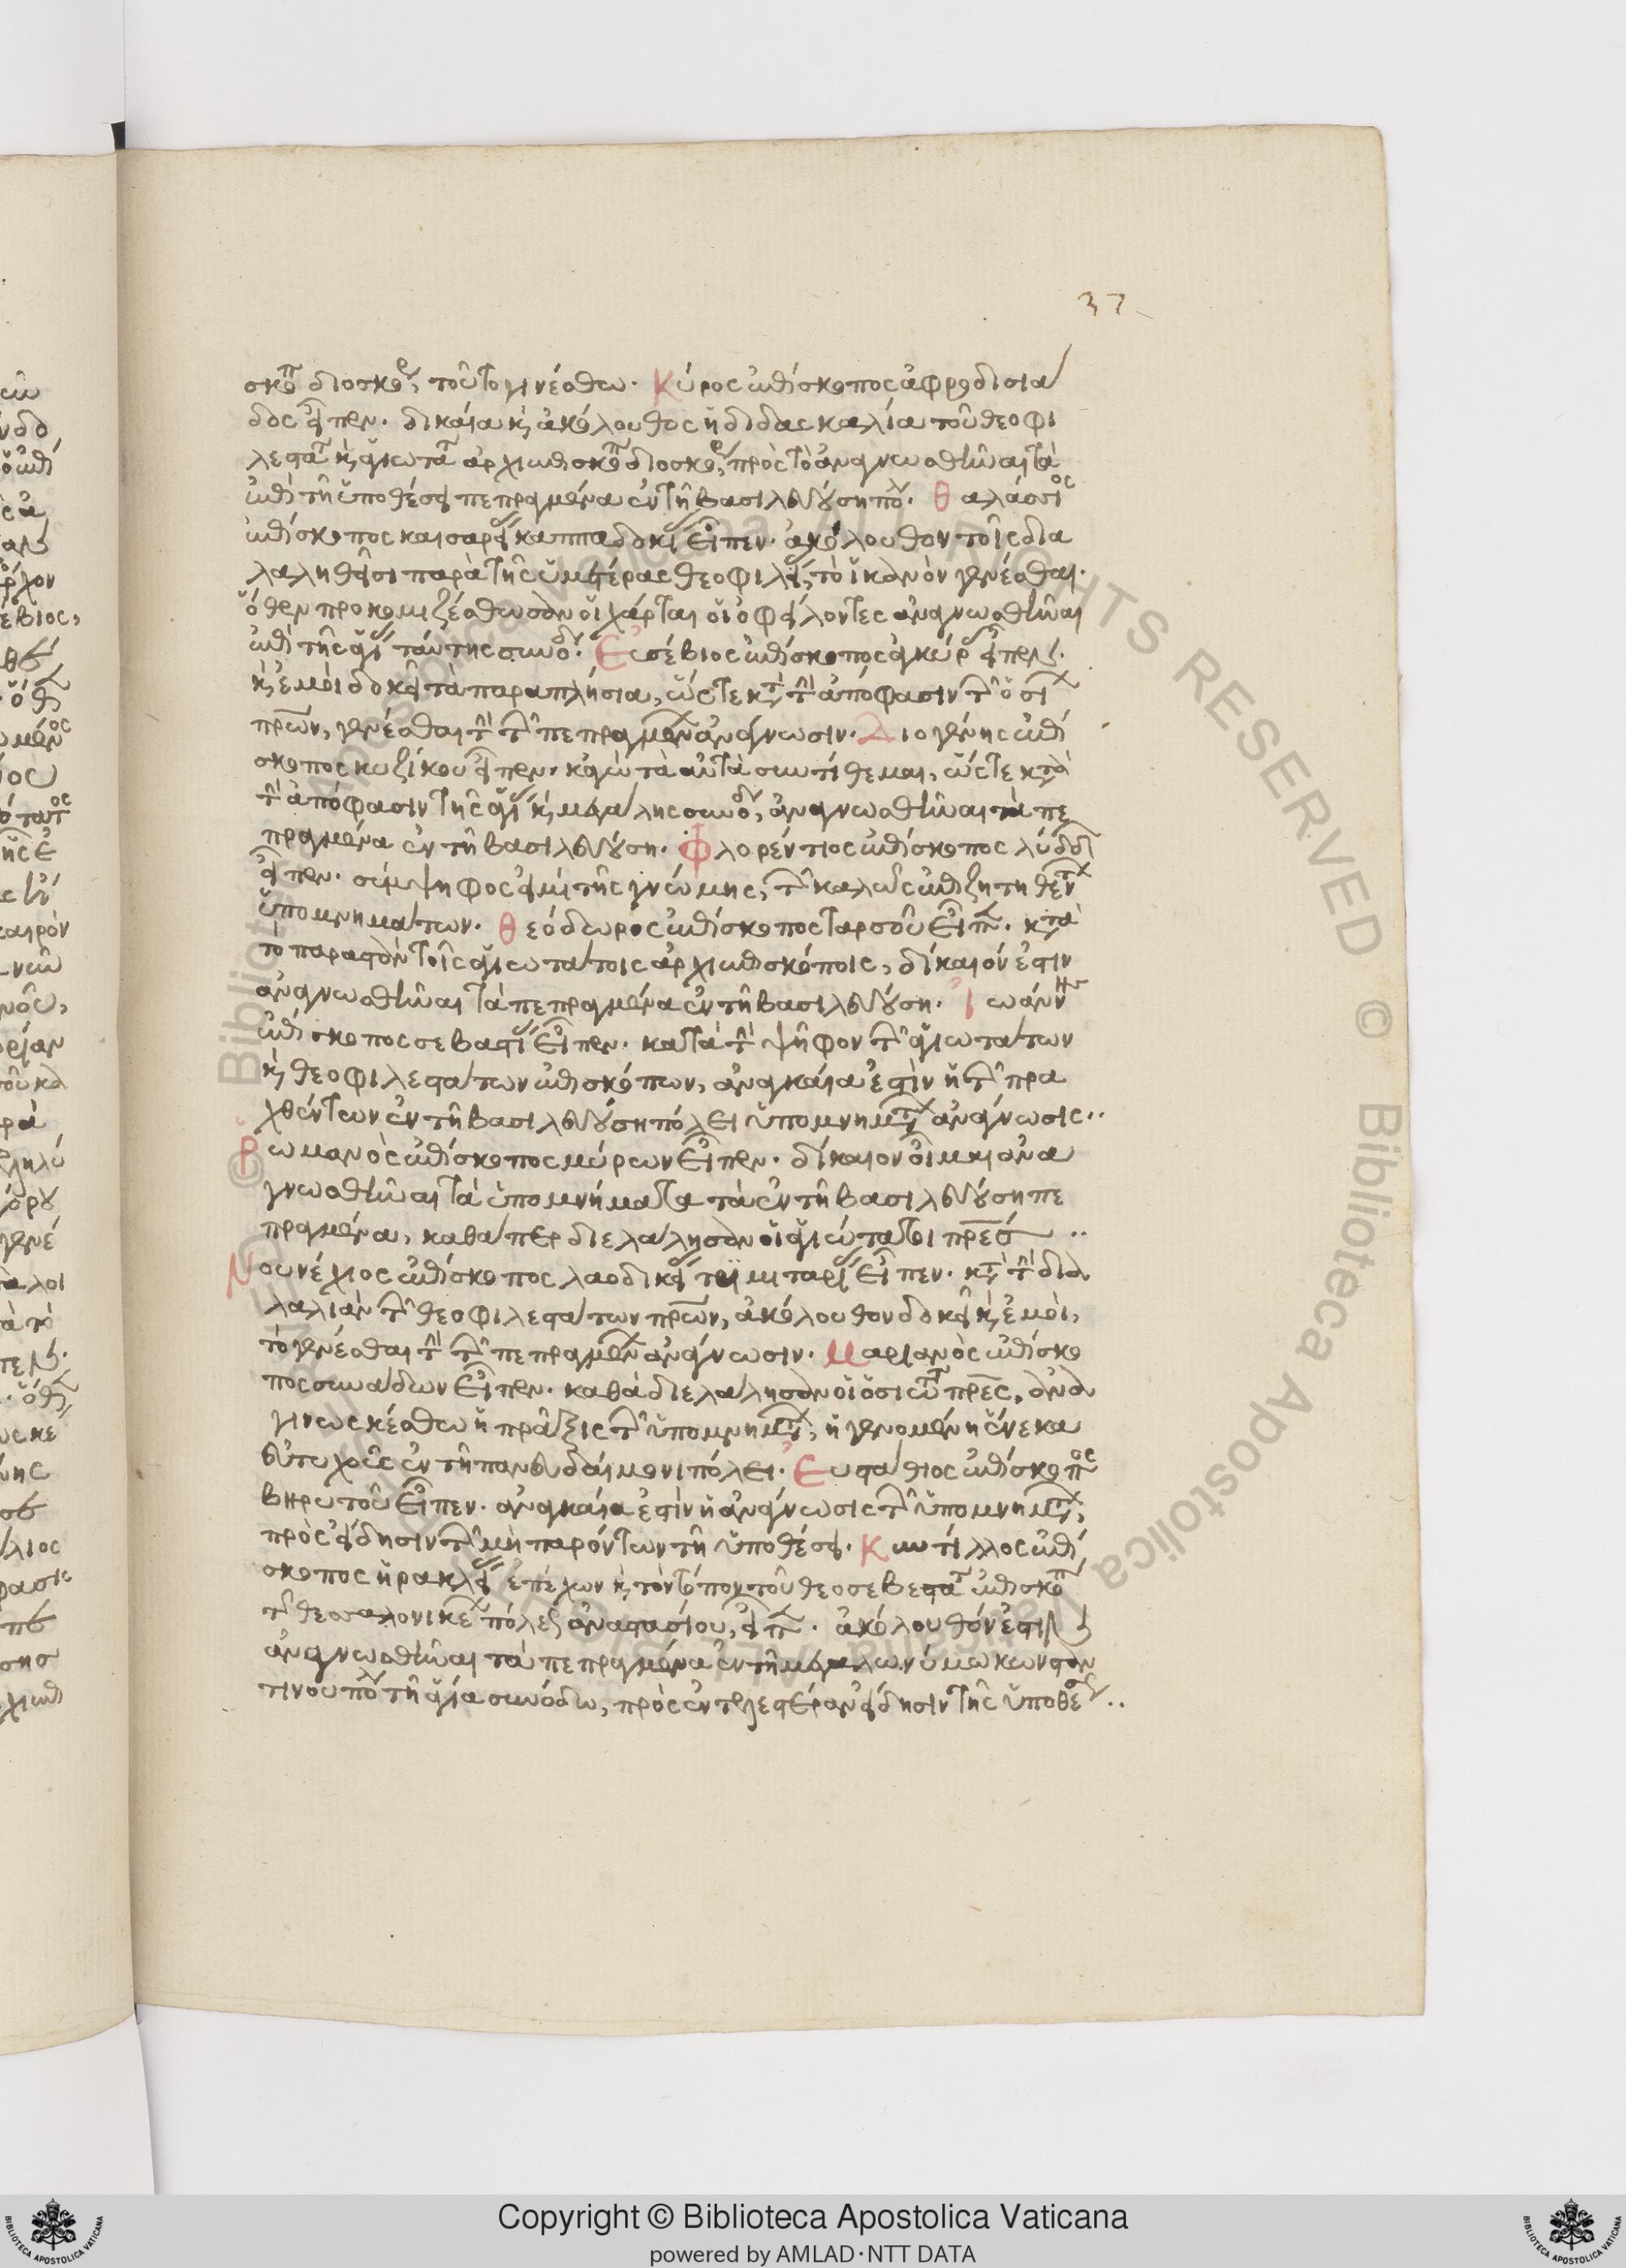 37
σκοπ διοσκορ, τοῦτο γινέσθω. Κύρος ἐπίσκοπος ἀφροδισιά
δος εἶπεν. δικαία κ, ἀκόλουθος ἡ διδασκαλία τοῦ θεοφι
λεστάτ κ, ἁγιωτάτ ἀρχιεπισκόπ διοσκόρ, πρὸς τὸ ἀναγνωσθῆναι τὰ
ἐπὶ τῆ ὑποθέσει πεπραγμένα ἐν τῆ βασιλευούση πόλ. θαλάσσιος
ἐπίσκοπος καισαρείας καππαδοκίας εἶπεν. ἀκόλουθον τοῖς δια
λαληθεῖσι παρὰ τῆς ὑμετέρας θεοφιλείας, τὸ ἱκανὸν γενέσθαι.
ὅθεν προκομιζέσθωσαν οἱ χάρται οἱ ὀφείλοντες ἀναγνωσθῆναι
ἐπὶ τῆς ἁγίας ταύτης συνόδ. Εὐσέβιος ἐπίσκοπος ἀγκύρας εἶπεν.
κ, ἐμοὶ δοκεῖ τὰ παραπλήσια, ὥστε κτ τὴν ἀπόφασιν τῶν ὁσίων
πρων, γενέσθαι τὴν τῶν πεπραγμένων ἀνάγνωσιν. Διογένης ἐπί
σκοπος κυζίκου εἶπεν. κἀγὼ τὰ αὐτὰ συντίθεμαι, ὥστε κατὰ
τὴν ἀπόφασιν τῆς ἁγίας κ, μεγάλης συνόδ, ἀναγνωσθῆναι τὰ πε
πραγμένα ἐν τῆ βασιλευούση. Φλορέντιος ἐπίσκοπος λύδδ
εἶπεν. σύμψηφος εἰμὶ τῆς γνώμης, τῶν καλῶς ἐπιζητηθέντων
ὑπομνημάτων. θεόδωρος ἐπίσκοπος ταρσοῦ εἶπ. κατὰ
τὸ παραστὰν τοῖς ἁγιωτάτοις ἀρχιεπισκόποις, δίκαιόν ἐστιν
ἀναγνωσθῆναι τὰ πεπραγμένα ἐν τῆ βασιλευούση. ἰωάννης
ἐπίσκοπος σεβαστείας εἶπεν. κατὰ τὴν ψῆφον τῶν ἁγιωτάτων
κ, θεοφιλεστάτων ἐπισκόπων, ἀναγκαία ἐστὶν ἡ τῶν πρα
χθέντων ἐν τῆ βασιλευούση πόλει ὑπομνημάτων ἀνάγνωσις..
Ῥωμανὸς ἐπίσκοπος μύρων εἶπεν. δίκαιον οἶμαι ἀνα
γνωσθῆναι τὰ ὑπομνήματα τὰ ἐν τῆ βασιλευούση πε
πραγμένα, καθάπερ διελάλησαν οἱ ἁγιώτατοι πρες ..
Νουνέχιος ἐπίσκοπος λαοδικείας τριμιταρίας εἶπεν. κτ τὴν δια
λαλιὰν τῶν θεοφιλεστάτων πρων, ἀκόλουθον δοκεῖ κ, ἐμοὶ,
τὸ γενέσθαι τὴν τῶν πεπραγμένων ἀνάγνωσιν. Μαριανὸς ἐπίσκο
πος συνάδων εἶπεν. καθὰ διελάλησαν οἱ ὁσιώτ πρες, ἀνα
γινωσκέσθω ἡ πρᾶξις τῶν ὑπομνημάτων, ἡ γενομένη ἕνεκα
εὐτυχοῦς ἐν τῆ πανευδαίμονι πόλει. Εὐστάθιος ἐπίσκοπος
βηρυτοῦ εἶπεν. ἀναγκαία ἐστὶν ἡ ἀνάγνωσις τῶν ὑπομνημάτων,
πρὸς εἴδησιν τῶν μὴ παρόντων τῆ ὑποθέσει. Κυντίλλος ἐπί
σκοπος ἡρακλείας ἐπέχων κ, τὸν τόπον τοῦ θεοσεβεστάτ ἐπισκόπ
τῆς θεσσαλονικέων πόλεως ἀναστασίου, εἶπ. ἀκόλουθόν ἐστιν
ἀναγνωσθῆναι τὰ πεπραγμένα ἐν τῆ μεγαλωνύμω κωνσταν
τινουπόλ τῆ ἁγία συνόδω, πρὸς ἐντελεστέραν εἴδησιν τῆς ὑποθέσεως ..
Copyright © Biblioteca Apostolica Vaticana
powered by AMLAD·NTT DATA